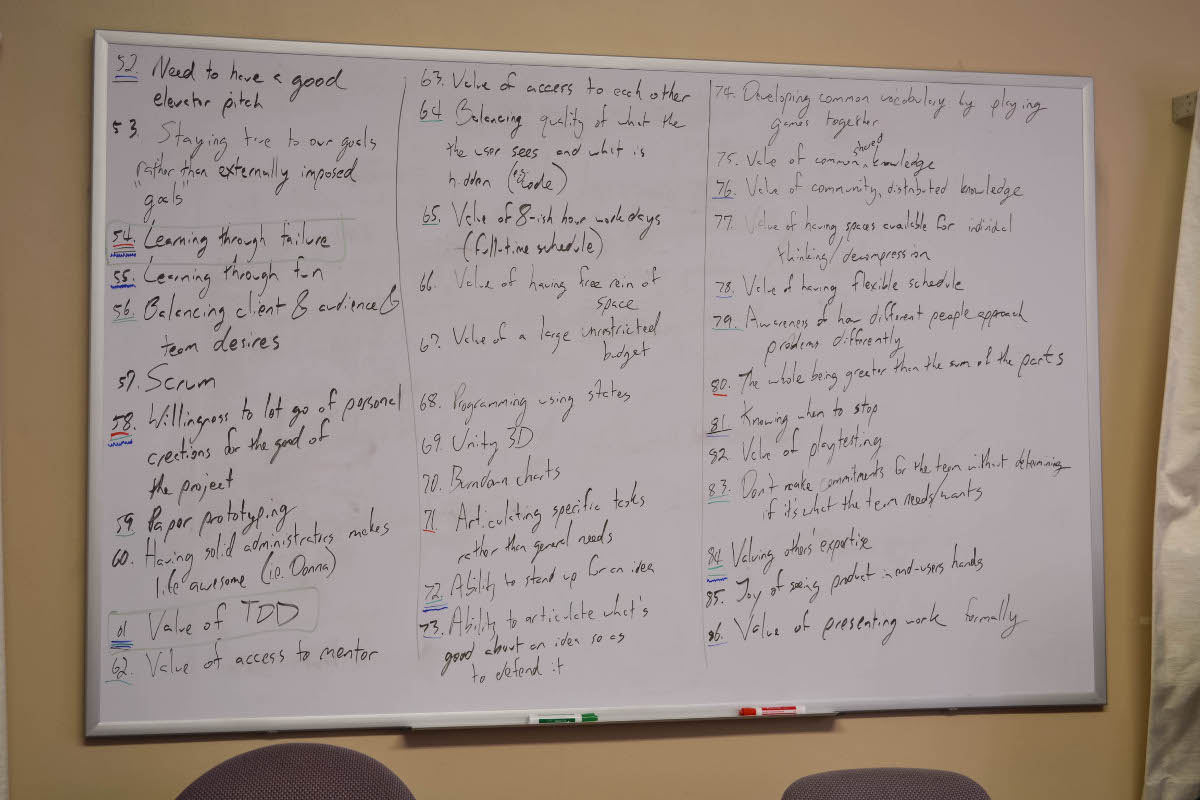 52. Need to have a good
elevator pitch
53. Staying true to our goals
rather than externally imposed
"goals"
54. Learning through failure
55. Learning through fun
56. Balancing client & audience &
team desires
57. Scrum
58. Willingness to let go of personal
creations for the good of
the project
59. Paper prototyping
60. Having solid administrators makes
life awesome (i.e. Donna)
61 Value of TDD
62. Value of access to mentor
63. Value of access to each other
64 Balancing quality of what the
the user sees and what is
hidden (eg. code)
65. Value of 8-ish hour work days
(full-time schedule)
66. Value of having free rein of
space
67. Value of a large unrestricted
budget
68. Programming using states
69. Unity 3D
70. Burndown charts
71. Articulating specific tasks
rather than general needs
72. Ability to stand up for an idea
73. Ability to articulate what's
good about an idea so as
to defend it
74. Developing common vocabulary by playing
games together
75. Value of common shared knowledge
76. Value of community, distributed knowledge
77. Value of having spaces available for individual
thinking/decompression
78. Value of having flexible schedule
79. Awareness of how different people approach
problems differently
80. The whole being greater than the sum of the parts
81 Knowing when to stop
82. Value of playtesting
83. Don't make commitments for the team without determining
if it's what the team needs/wants
84 Valuing others' expertise
85. Joy of seeing product in end-users hands
86. Value of presenting work formally